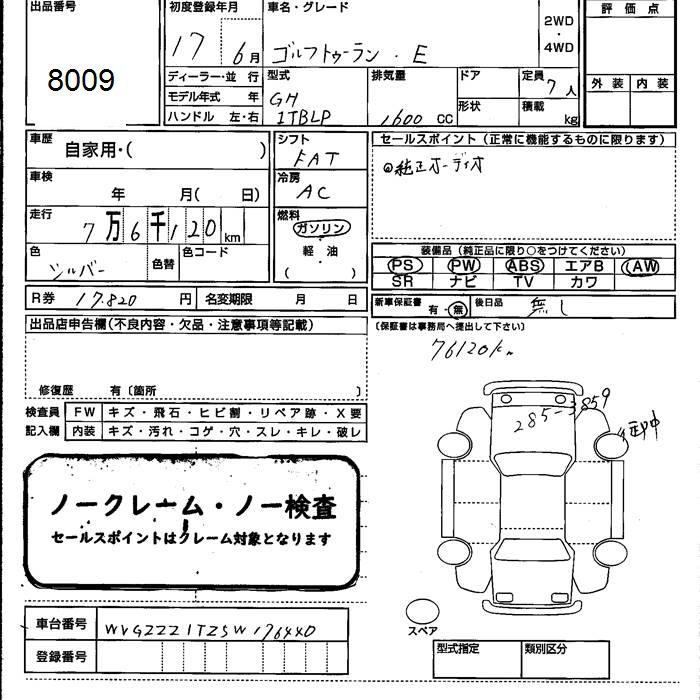 出品番号
8009
初度登録年月
17 6月
車名・グレード
ゴルフトゥーラン・E
2WD
・
4WD
評価点
外装 内装
ディーラー・並行
モデル年式 年
ハンドル 左・右
型式
GH
1TBLP
排気量
1600 CC
ドア
形状
定員
7人
積載
kg
車歴
自家用・( )
車検
年 月( 日)
走行
7万6千120km
色
シルバー
色替
色コード
シフト
FAT
冷房
AC
燃料
ガソリン
軽油
( )
セールスポイント(正常に機能するものに限ります)
◎純正オーディオ
装備品(純正品に限り○をつけてください)
PS PW ABS エアB AW
SR ナビ TV カワ
R券 17,820円 名変期限 月 日
新車保証書 有・無 後日品 無し
(保証書は事務局へ提出して下さい)
出品店申告欄(不良内容・欠品・注意事項等記載)
76120km
修復歴 有〔箇所 〕
検査員 FW キズ・飛石・ヒビ割・リペア跡・X要
記入欄 内装 キズ・汚れ・コゲ・穴・スレ・キレ・破レ
285-3859
ノークレーム・ノー検査
セールスポイントはクレーム対象となります
スペア
車台番号 WVGZZZ1TZ5W176440
登録番号
型式指定 類別区分